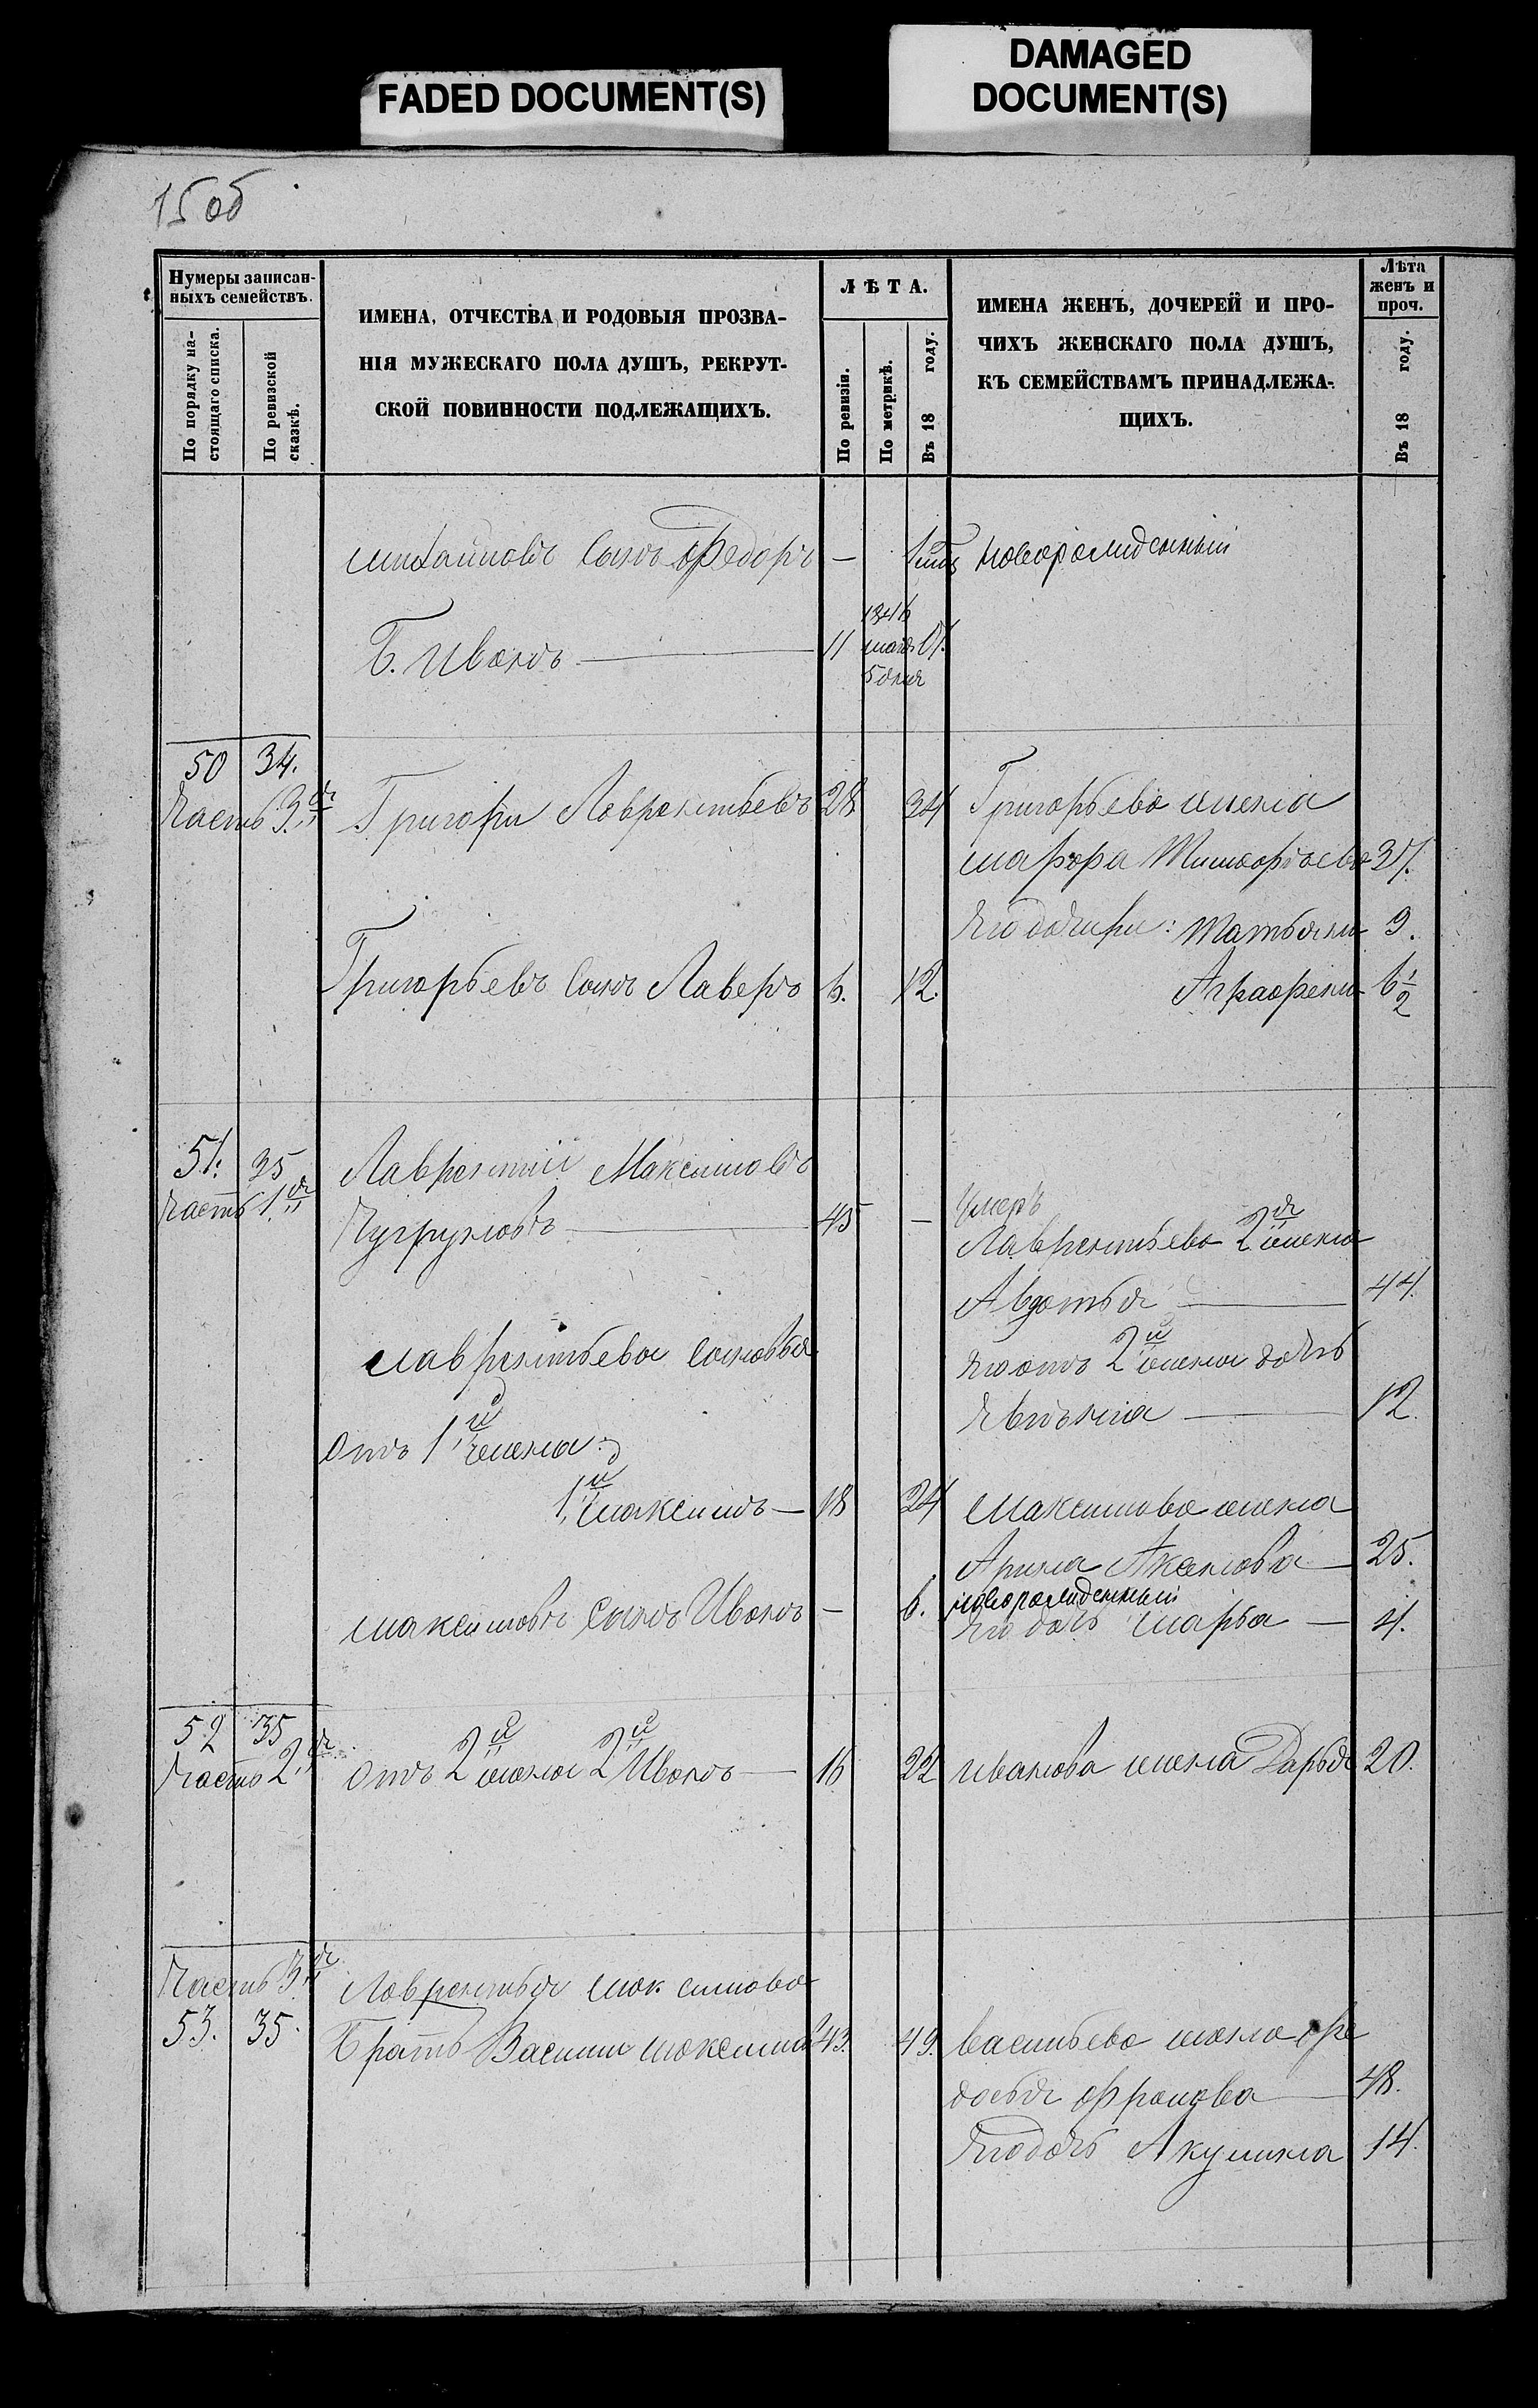 FADED DOCUMENT(S)
DAMAGED
DOCUMENT(S)
15 об
Нумеры записан-
ныхъ семействъ.
По порядку на-
стоящаго списка.
По ревизской
сказкѣ.
ИМЕНА, ОТЧЕСТВА И РОДОВЫЯ ПРОЗВА-
НІЯ МУЖЕСКАГО ПОЛА ДУШЪ, РЕКРУТ-
СКОЙ ПОВИННОСТИ ПОДЛЕЖАЩИХЪ.
ЛѢТА.
По ревизіи.
По метрикѣ.
Въ 18 году.
ИМЕНА ЖЕНЪ, ДОЧЕРЕЙ И ПРО-
ЧИХЪ ЖЕНСКАГО ПОЛА ДУШЪ,
КЪ СЕМЕЙСТВАМЪ ПРИНАДЛЕЖА-
ЩИХЪ.
Лѣта
женъ и
проч.
Въ 18 году.
Михайловъ сынъ Федоръ — новорожденный
Б. Иванъ — 11 17.
50 34.
Часть 3я Григори Лаврентьевъ 28 34 Григорьева жена
Марфа 37.
Его дочери: Татьяна 9.
Григорьевъ сынъ Лаверъ 6. 12. Аграфена 6 1/2
51. 35 Лаврентий Максимовъ
Часть 1я — 45 — умеръ
Лаврентьева 2я жена
Авдотья — 44.
Лаврентьева сыновья
его отъ 2й жены дочь
— 12.
отъ 1й жены
1й Максимъ — 18 24 Максимова жена
Арина — 25.
Максимовъ сынъ Иванъ — 6. новорожденный
Его дочь Марья — 4.
52 35
Часть 2я отъ 2й жены 2й Иванъ — 16 22 Иванова жена Дарья 20.
Часть 3я Лаврентья Максимова
53. 35. братъ Васили Максимов 43. 49. Васильева жена Фе
досья — 48.
Его дочь Акулина 14.